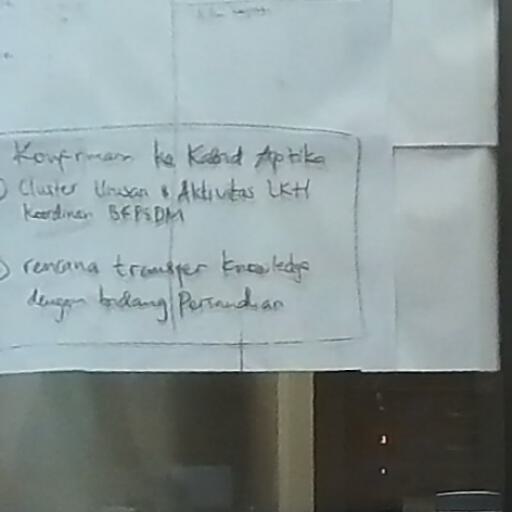 Konfirmasi ke Kabid Aptika
Cluster Urusan & Aktivitas LKH
Koordinasi BKPSDM
rencana transfer knowledge
dengan bidang Persandian